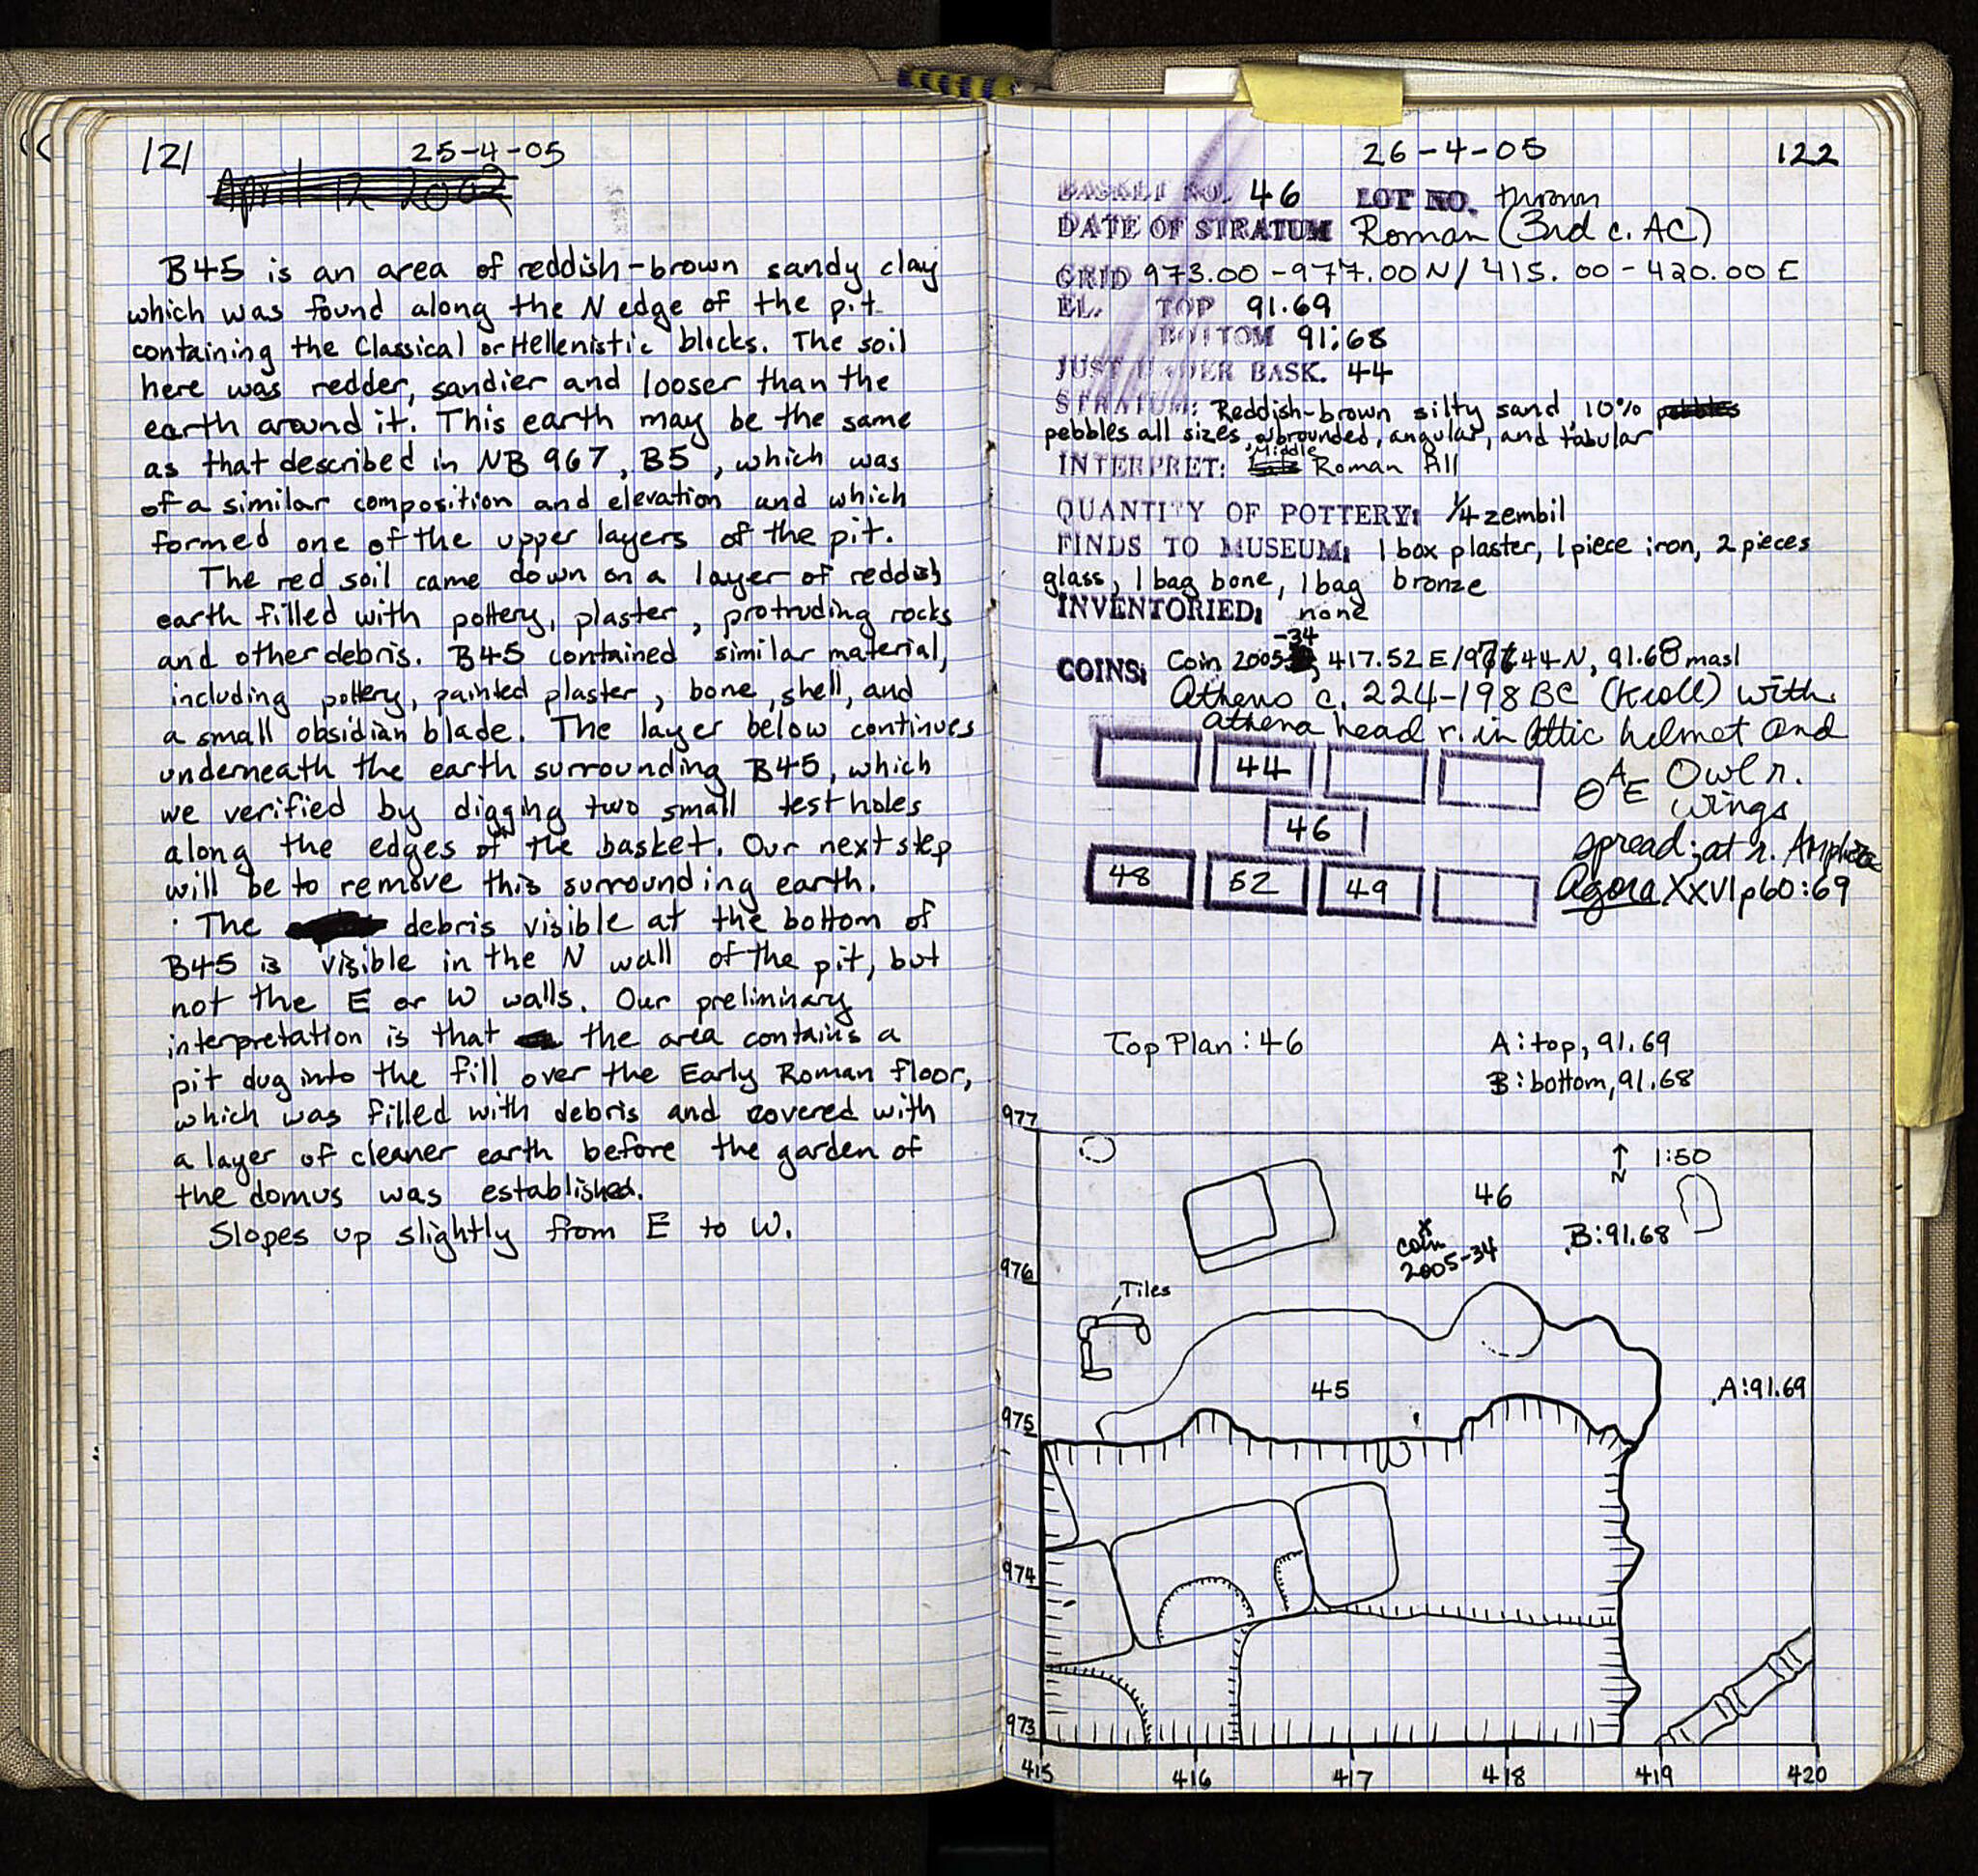 121
25-4-05
April 12 2002
B45 is an area of reddish-brown sandy clay
which was found along the N edge of the pit
containing the Classical or Hellenistic blocks. The soil
here was redder, sandier and looser than the
earth around it. This earth may be the same
as that described in NB 967, B5, which was
of a similar composition and elevation and which
formed one of the upper layers of the pit.
The red soil came down on a layer of reddish
earth filled with pottery, plaster, protruding rocks
and other debris. B45 contained similar material,
including pottery, painted plaster, bone, shell, and
a small obsidian blade. The layer below continues
underneath the earth surrounding B45, which
we verified by digging two small test holes
along the edges of the basket. Our next step
will be to remove this surrounding earth.
The debris visible at the bottom of
B45 is visible in the N wall of the pit, but
not the E or W walls. Our preliminary
interpretation is that the area contains a
pit dug into the fill over the Early Roman floor,
which was filled with debris and covered with
a layer of cleaner earth before the garden of
the domus was established.
Slopes up slightly from E to W.
26-4-05
122
BASKET NO. 46 LOT NO. thrown
DATE OF STRATUM Roman (3rd c. AC)
GRID 973.00-977.00 N/415.00-420.00 E
EL. TOP 91.69
BOTTOM 91.68
JUST UNDER BASK. 44
STRATUM: Reddish-brown silty sand, 10% pebbles
pebbles all sizes, subrounded, angular, and tabular
INTERPRET: Middle Roman fill
QUANTITY OF POTTERY: 1/4 zembil
FINDS TO MUSEUM: 1 box plaster, 1 piece iron, 2 pieces
glass, 1 bag bone, 1 bag bronze
INVENTORIED: none
COINS: Coin 2005-34, 417.52 E/976.44 N, 91.68 masl
Athens c. 224-198 BC (Kroll) with
athena head r. in Attic helmet and
44
ΑΘΕ Owl r.
wings
46
spread; at r. Amphora
48 52 49
Agora XXVI p60:69
Top Plan: 46
A: top, 91.69
B: bottom, 91.68
977
N
1:50
46
B: 91.68
coin
2005-34
976
Tiles
45
A: 91.69
975
974
973
415 416 417 418 419 420